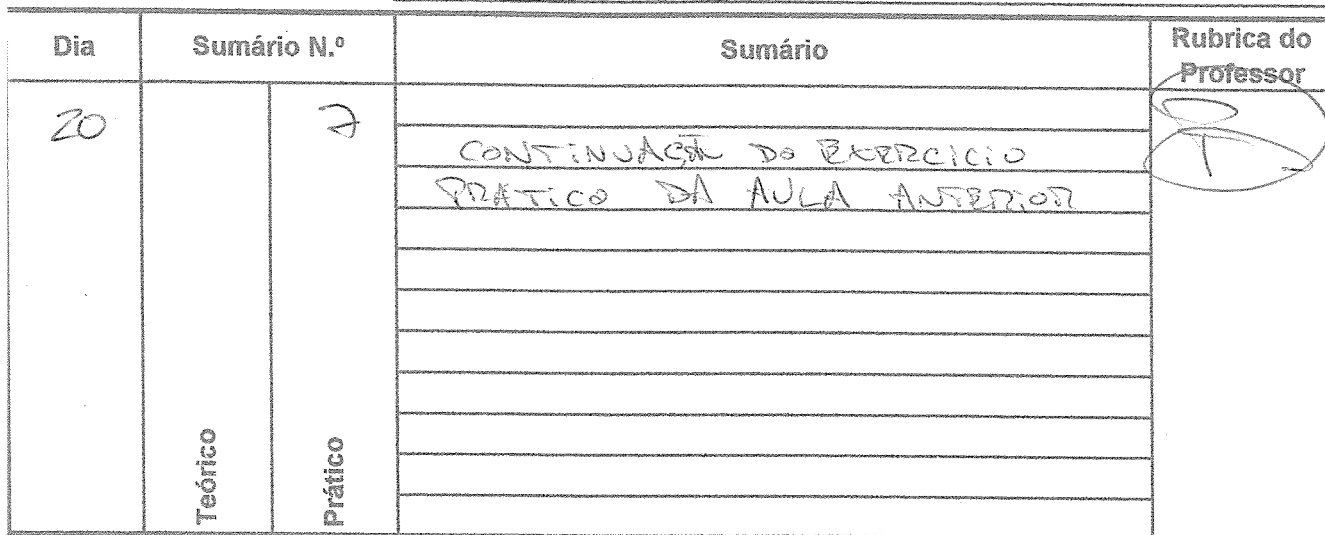 Dia Sumário N.º Sumário Rubrica do Professor
20 7
CONTINUAÇÃO DO EXERCÍCIO
PRÁTICO DA AULA ANTERIOR
Teórico Prático